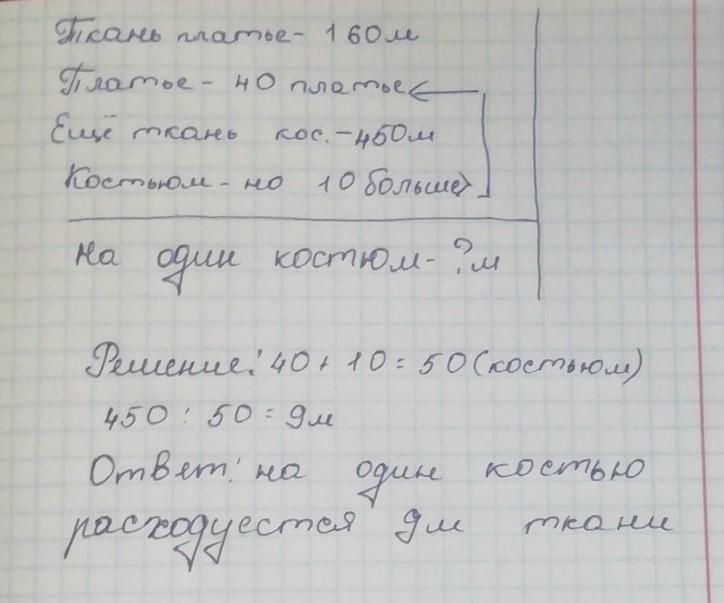 Ткань платье - 160м
Платье - 40 платье
Ещё ткань кос. - 450м
Костьюм - но 10 больше
на один костюм - ? м
Решение: 40 + 10 = 50 (костьюм)
450 : 50 = 9м
Ответ: на один костью
расходуестся 9м ткани